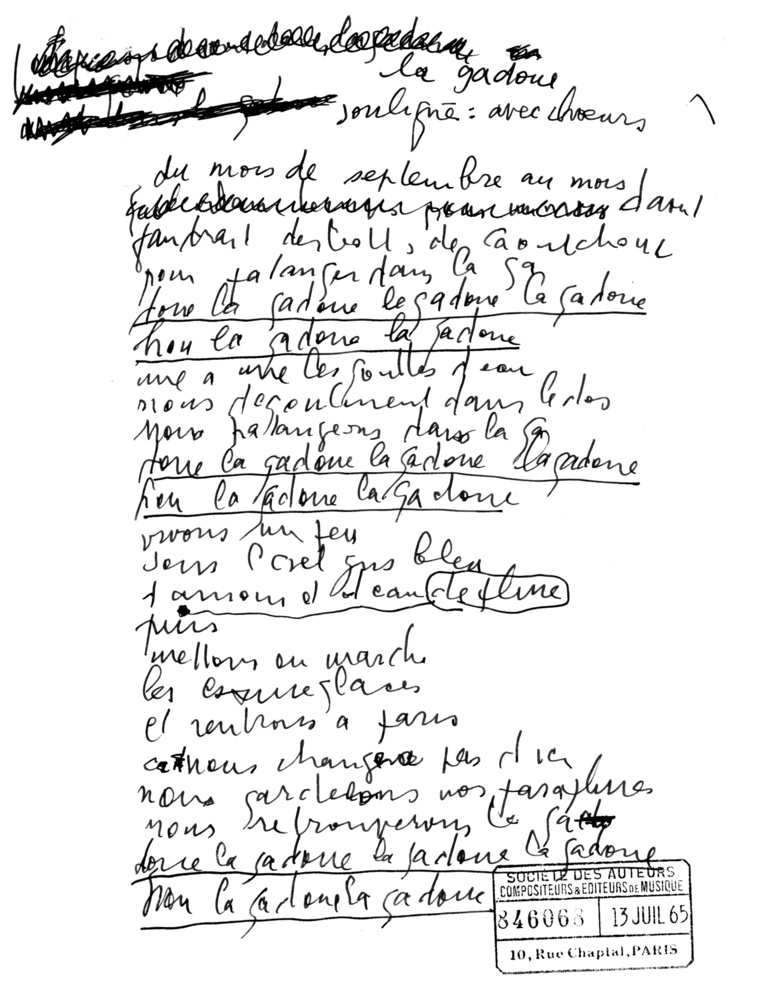 la gadoue
souligné : avec chœurs
du mois de septembre au mois
daout
faudrait des bott, de caoutchouc
pour patauger dans la ga
doue la gadoue la gadoue la gadoue
hou la gadoue la gadoue
une a une les gouttes d'eau
nous degoulinent dans le dos
nous pataugeons dans la ga
doue la gadoue la gadoue la gadoue
hou la gadoue la gadoue
vivons un peu
sous l'ciel gris bleu
d'amour et d'eau de pluie
puis
mettons en marche
les essuie glaces
et rentrons a paris
ca nous changera pas d'ici
nous garderons nos parapluies
nous retrouverons la ga
doue la gadoue la gadoue la gadoue
hou la gadoue la gadoue
SOCIÉTÉ DES AUTEURS
COMPOSITEURS & EDITEURS DE MUSIQUE
846068 13 JUIL 65
10, Rue Chaptal, PARIS